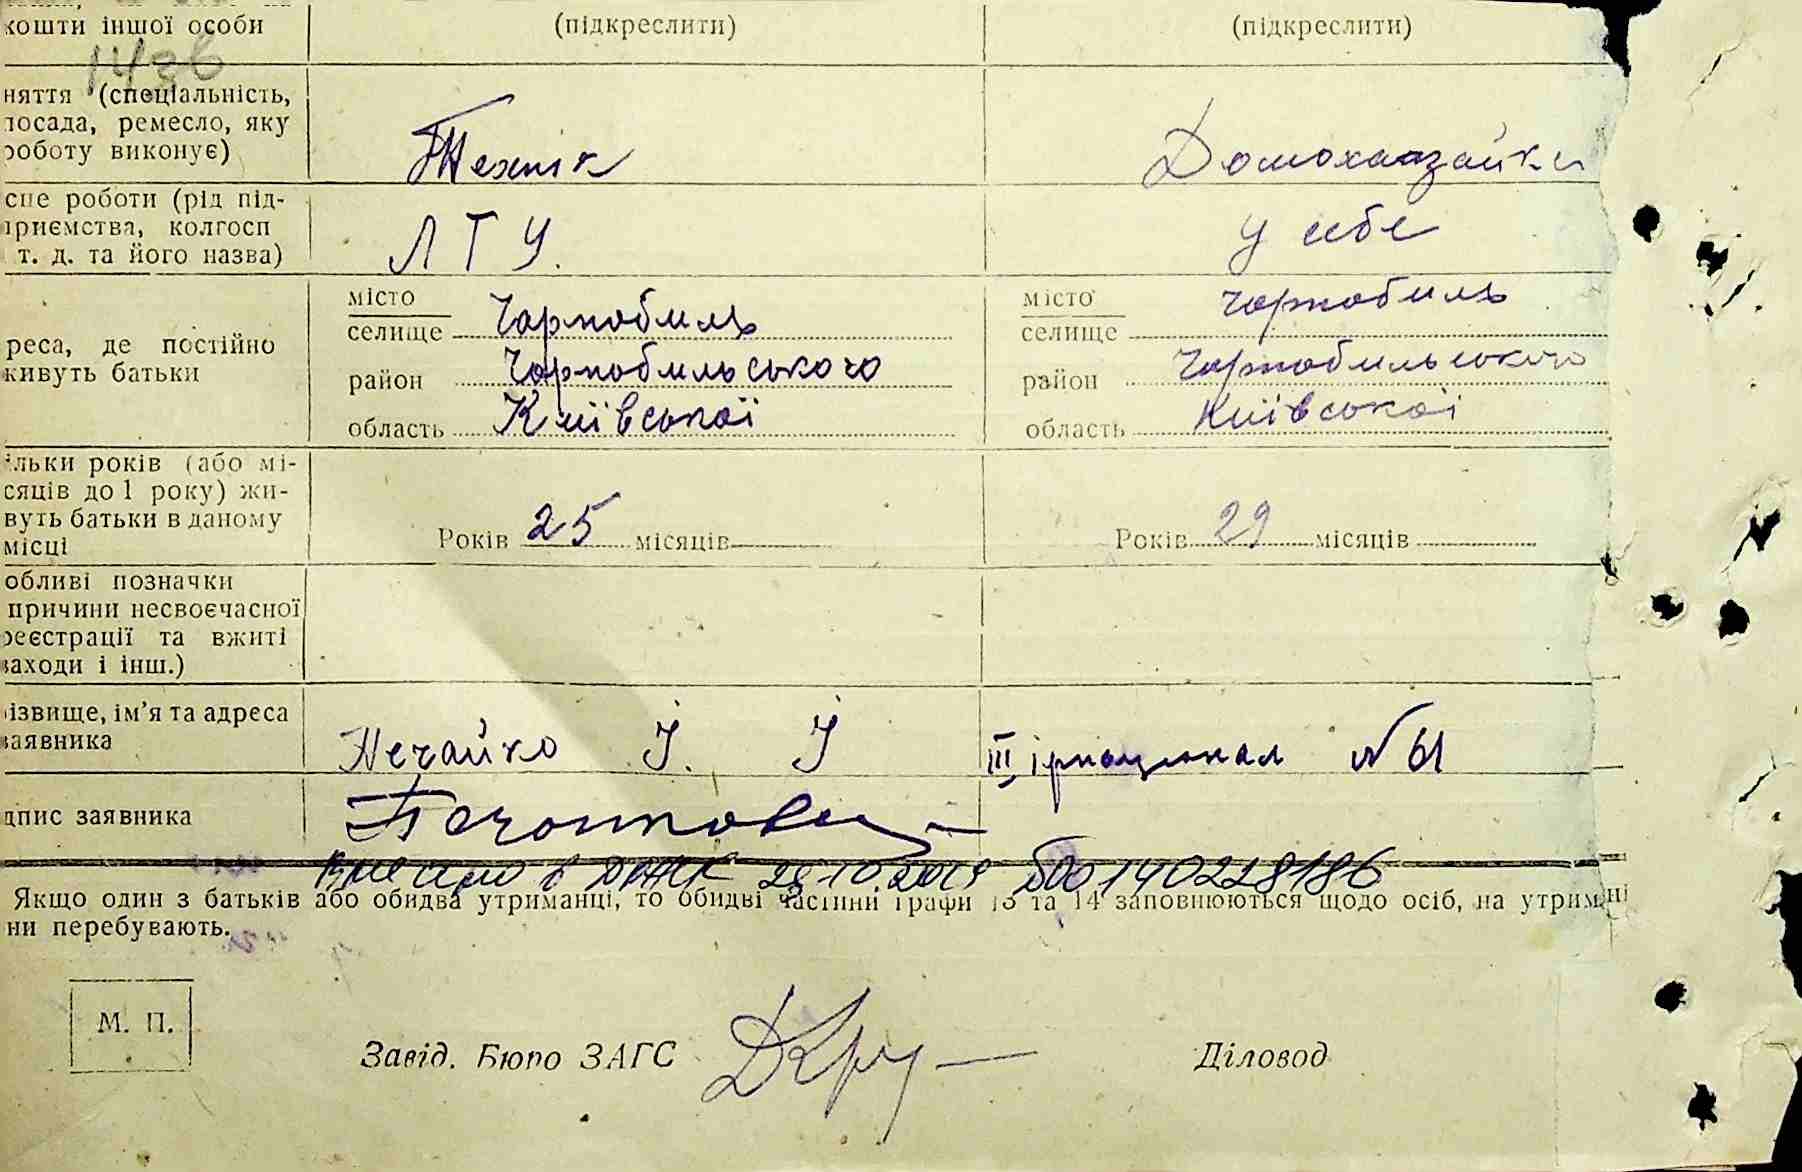 кошти іншої особи (підкреслити) (підкреслити)
няття (спеціальність,
посада, ремесло, яку
роботу виконує)
Технік Домохазайка
сце роботи (рід під-
приємства, колгосп
т. д. та його назва)
Л Т У. У себе
реса, де постійно
живуть батьки
місто
селище Чорнобиль
район Чорнобильського
область Київської
місто
селище Чорнобиль
район Чорнобильського
область Київської
ільки років (або мі-
сяців до 1 року) жи-
вуть батьки в даному
місці
Років 25 місяців Років 29 місяців
обливі позначки
причини несвоєчасної
реєстрації та вжиті
заходи і інш.)
ізвище, ім'я та адреса
заявника
Нечайко І. І ІІІ Інтернаціонал N 61
дпис заявника
Внесено в ДРАЦС 29.10.2019 500140228186
Якщо один з батьків або обидва утриманці, то обидві частини графи 13 та 14 заповнюються щодо осіб, на утриманні
ни перебувають.
М. П.
Завід. Бюро ЗАГС Діловод